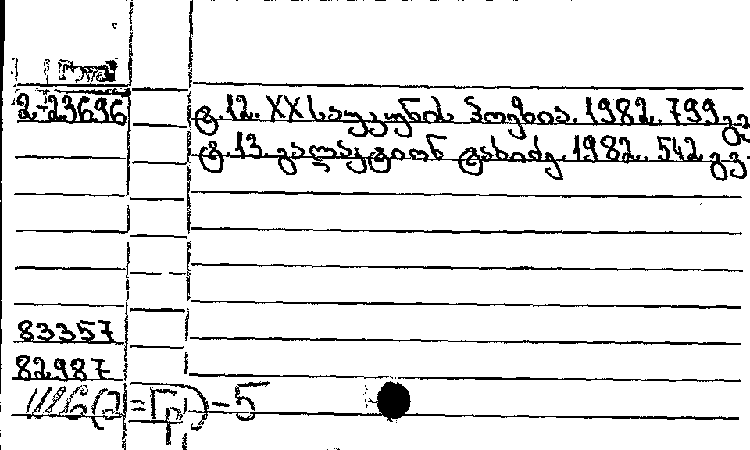 2-23696 ტ.12. XX საუკუნის პოეზია. 1982. 799 გვ
ტ.13. გალაკტიონ ტაბიძე. 1982. 542 გვ.
83357
82987
Ш6(2=Гр)-5